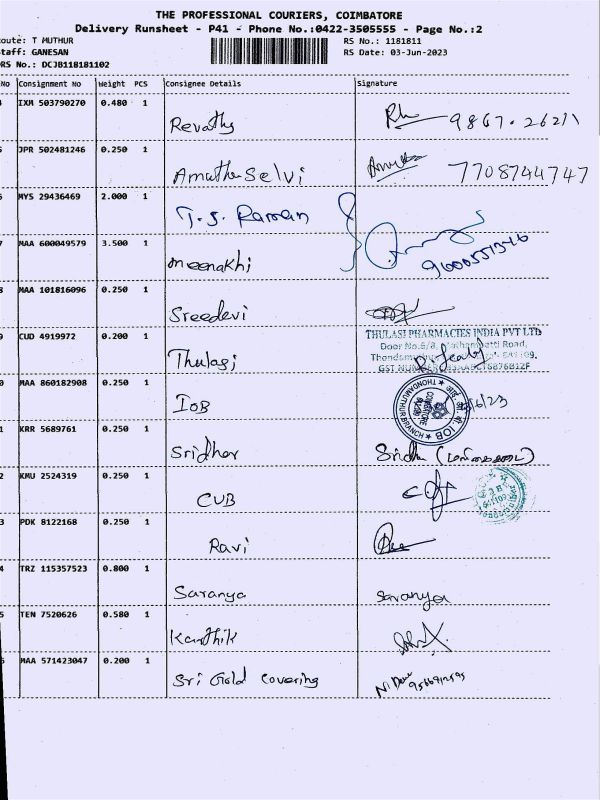 THE PROFESSIONAL COURIERS, COIMBATORE
Delivery Runsheet - P41 - Phone No.:0422-3505555 - Page No.:2
oute: T MUTHUR
RS No.: 1181811
taff: GANESAN
RS Date: 03-Jun-2023
RS No.: DCJB118181102
No Consignment No Weight PCS Consignee Details Signature
4 IXM 503790270 0.480 1 Revathy
5 JPR 502481246 0.250 1 Amutha Selvi 7708744747
6 MYS 29436469 2.000 1 T.S. Raman
7 MAA 600049579 3.500 1 Meenakhi
8 MAA 101816096 0.250 1 Sreedevi
9 CUD 4919972 0.200 1 Thulasi
THULASI PHARMACIES INDIA PVT LTD
Road,
GST
0 MAA 860182908 0.250 1 IOB
1 KRR 5689761 0.250 1 Sridhar Sridh
2 KMU 2524319 0.250 1 CUB
3 PDK 8122168 0.250 1 Ravi
4 TRZ 115357523 0.800 1 Saranya Saranya
5 TEN 7520626 0.580 1 Karthik
6 MAA 571423047 0.200 1 Sri Gold Covering